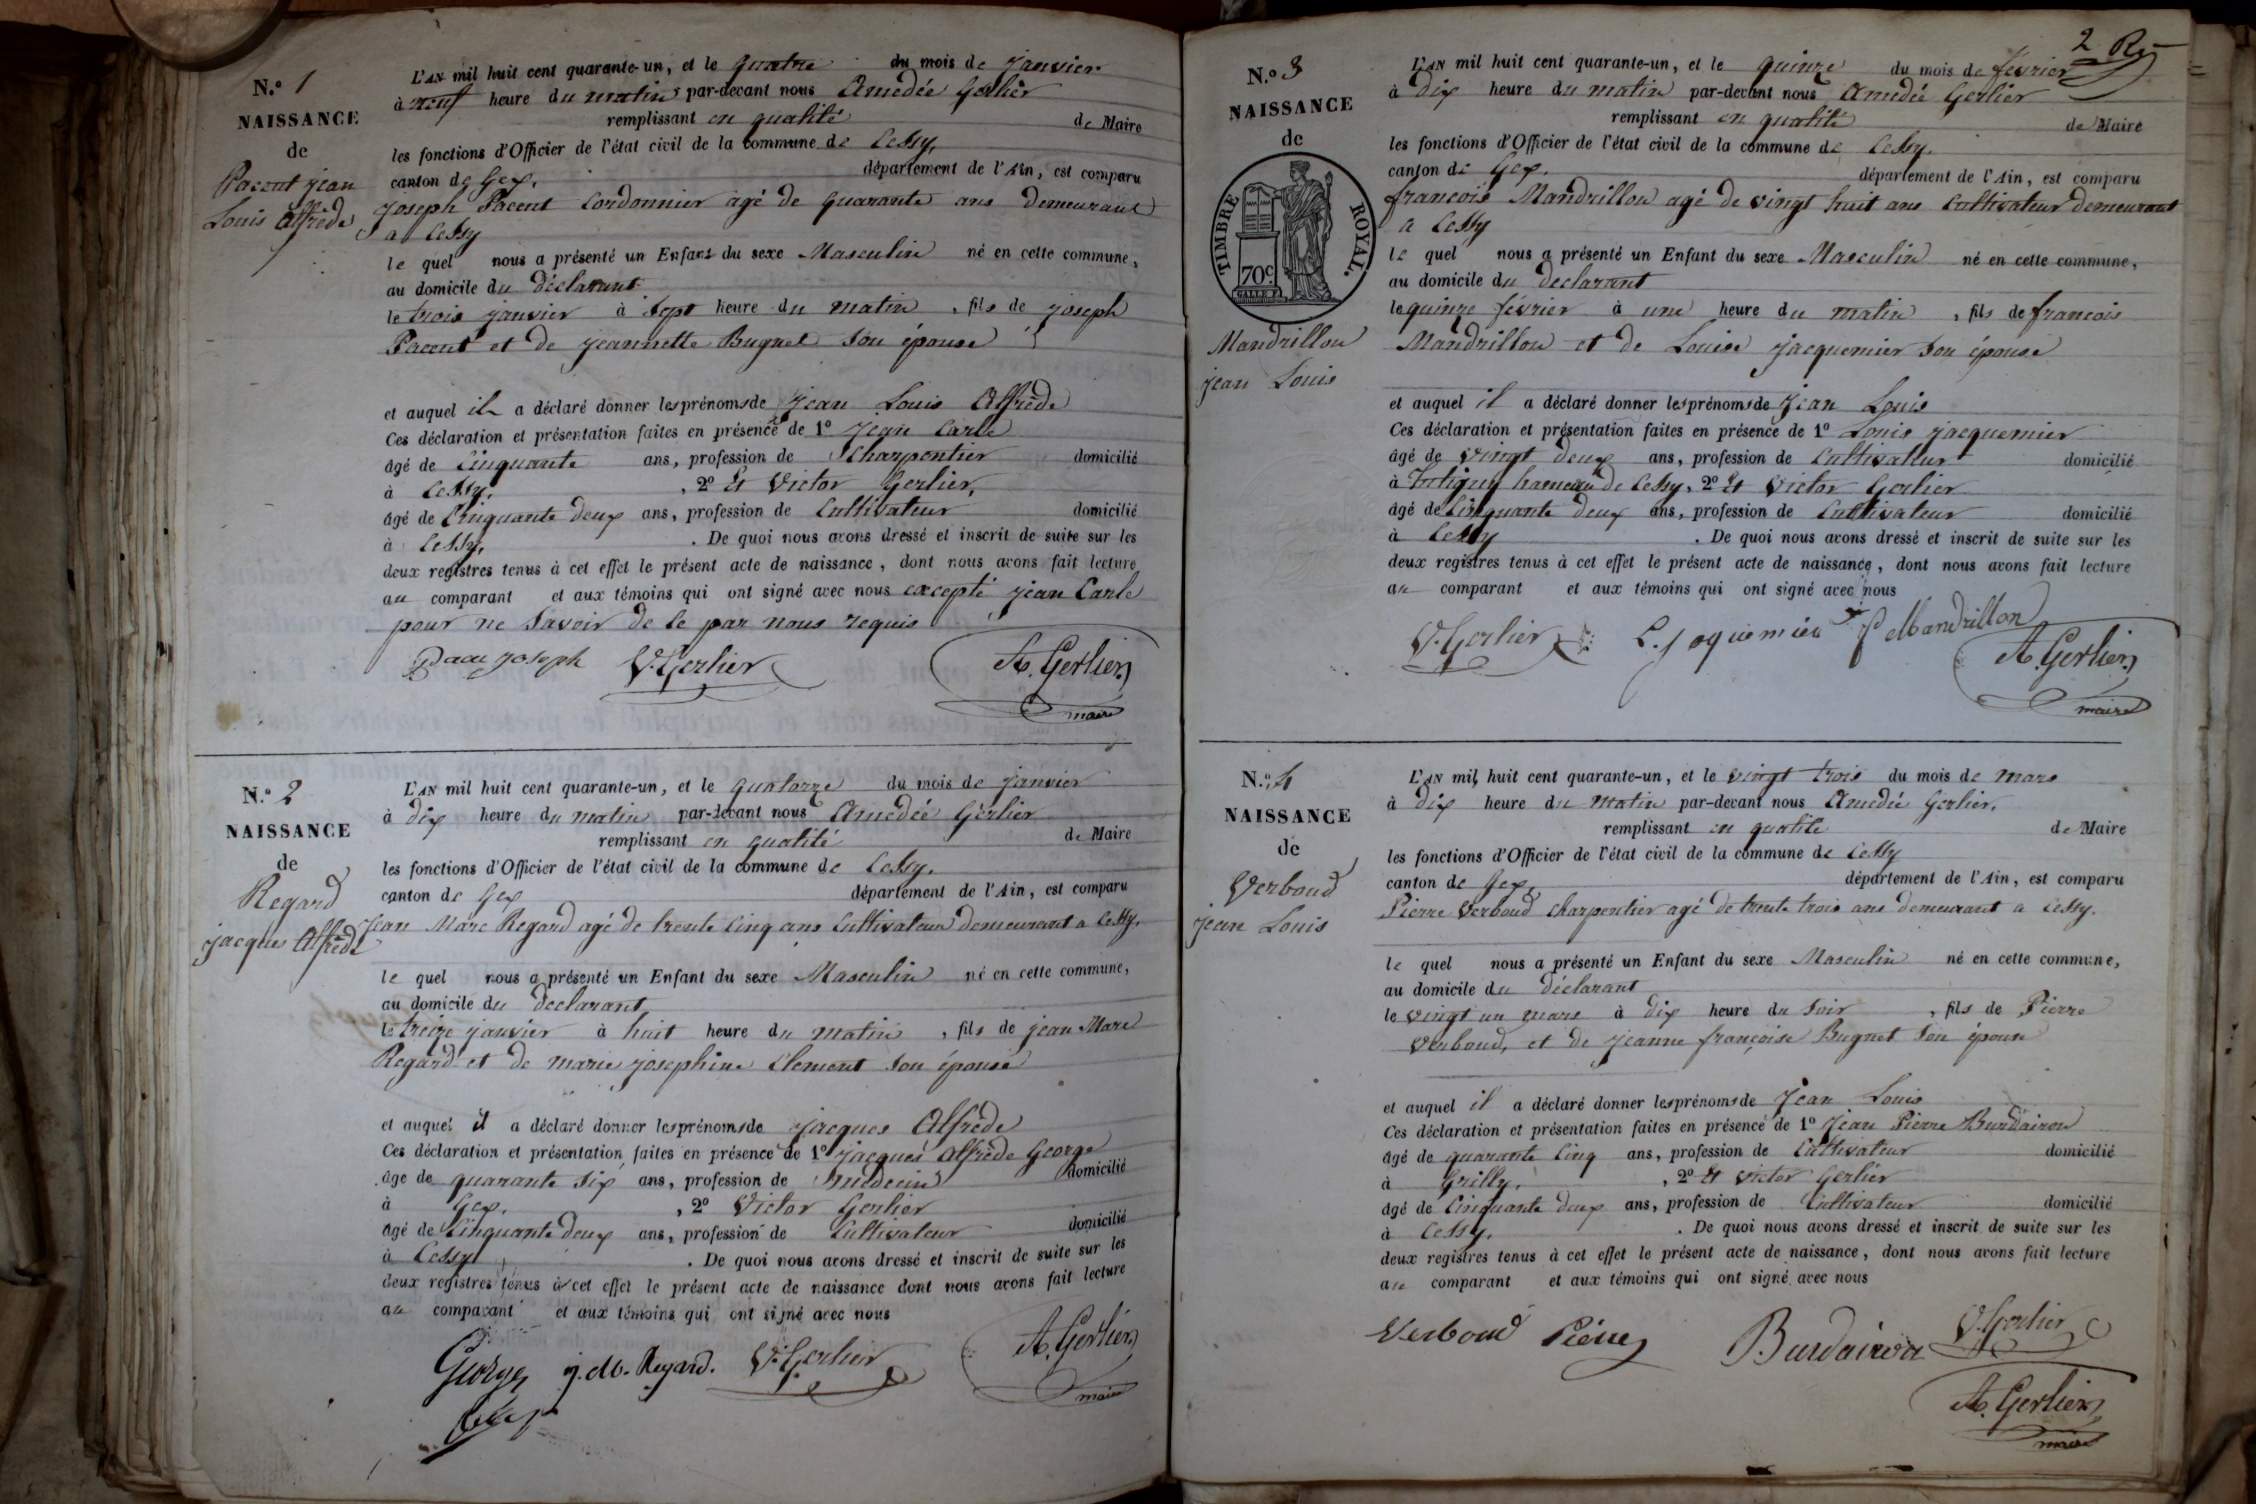 N.º 1
NAISSANCE
de
Pacent jean
Louis Alfrède
L'AN mil huit cent quarante-un, et le quatre du mois de janvier
à neuf heure du matin par-devant nous Amedée Gerlier
remplissant en qualité de Maire
les fonctions d'Officier de l'état civil de la commune de Cessy,
canton de Gex. département de l'Ain, est comparu
joseph Pacent Cordonnier agé de quarante ans demeurant
a Cessy
le quel nous a présenté un Enfant du sexe Masculin né en cette commune,
au domicile du déclarant
le trois janvier à sept heure du matin, fils de joseph
Pacent et de jeannette Bugnet son épouse
et auquel il a déclaré donner les prénoms de jean Louis Alfrède
Ces déclaration et présentation faites en présence de 1º jean Carle
âgé de Cinquante ans, profession de Charpentier domicilié
à Cessy. , 2º Et Victor Gerlier,
âgé de Cinquante deux ans, profession de Cultivateur domicilié
à Cessy, . De quoi nous avons dressé et inscrit de suite sur les
deux registres tenus à cet effet le présent acte de naissance, dont nous avons fait lecture
au comparant et aux témoins qui ont signé avec nous excepté jean Carle
pour ne savoir de le par nous requis
joseph V. Gerlier A. Gerlier
maire
N.º 2
NAISSANCE
de
Regard
jacques Alfrède
L'AN mil huit cent quarante-un, et le quatorze du mois de janvier
à dix heure du matin par-devant nous Amedée Gerlier
remplissant en qualité de Maire
les fonctions d'Officier de l'état civil de la commune de Cessy.
canton de Gex département de l'Ain, est comparu
Jean Marc Regard agé de trente Cinq ans Cultivateur demeurant a Cessy.
le quel nous a présenté un Enfant du sexe Masculin né en cette commune,
au domicile du declarant
le treize janvier à huit heure du matin, fils de jean Marc
Regard et de marie josephine Clement son épouse
et auquel il a déclaré donner les prénoms de jacques Alfrède
Ces déclaration et présentation faites en présence de 1º jacques Alfrède George
âge de quarante six ans, profession de médecin domicilié
à Gex. , 2º Victor Gerlier
âgé de Cinquante deux ans, profession de Cultivateur domicilié
à Cessy . De quoi nous avons dressé et inscrit de suite sur les
deux registres tenus à cet effet le présent acte de naissance dont nous avons fait lecture
au comparant et aux témoins qui ont signé avec nous
George j. M. Regard. V. Gerlier A. Gerlier
maire
2
N.º 3
NAISSANCE
de
TIMBRE ROYAL.
70c
Mandrillon
jean Louis
L'AN mil huit cent quarante-un, et le quinze du mois de février
à dix heure du matin par-devant nous Amedée Gerlier
remplissant en qualité de Maire
les fonctions d'Officier de l'état civil de la commune de Cessy.
canton de Gex. département de l'Ain, est comparu
francois Mandrillon agé de vingt huit ans Cultivateur demeurant
a Cessy
le quel nous a présenté un Enfant du sexe Masculin né en cette commune,
au domicile du declarant
le quinze février à une heure du matin, fils de francois
Mandrillon et de Louise jacquemier son épouse
et auquel il a déclaré donner les prénoms de jean Louis
Ces déclaration et présentation faites en présence de 1º Louis jacquemier
âgé de vingt deux ans, profession de Cultivateur domicilié
à hameau de Cessy, 2º Et Victor Gerlier
âgé de Cinquante deux ans, profession de Cultivateur domicilié
à Cessy . De quoi nous avons dressé et inscrit de suite sur les
deux registres tenus à cet effet le présent acte de naissance, dont nous avons fait lecture
au comparant et aux témoins qui ont signé avec nous
V. Gerlier L. joquemier f Mandrillon
A. Gerlier
maire
N.º 4
NAISSANCE
de
Verboud
jean Louis
L'AN mil huit cent quarante-un, et le vingt trois du mois de mars
à dix heure du matin par-devant nous Amedée Gerlier,
remplissant en qualité de Maire
les fonctions d'Officier de l'état civil de la commune de Cessy
canton de Gex, département de l'Ain, est comparu
Pierre Verboud charpentier agé de trente trois ans demeurant a Cessy.
le quel nous a présenté un Enfant du sexe Masculin né en cette commune,
au domicile du déclarant
le vingt un mars à dix heure du soir, fils de Pierre
Verboud, et de jeanne françoise Bugnet son épouse
et auquel il a déclaré donner les prénoms de jean Louis
Ces déclaration et présentation faites en présence de 1º Jean Pierre Burdairon
âgé de quarante Cinq ans, profession de Cultivateur domicilié
à Grilly. , 2º Et victor Gerlier
âgé de Cinquante deux ans, profession de Cultivateur domicilié
à Cessy. . De quoi nous avons dressé et inscrit de suite sur les
deux registres tenus à cet effet le présent acte de naissance, dont nous avons fait lecture
au comparant et aux témoins qui ont signé avec nous
Verboud Pierre Burdairon V. Gerlier
A. Gerlier
maire